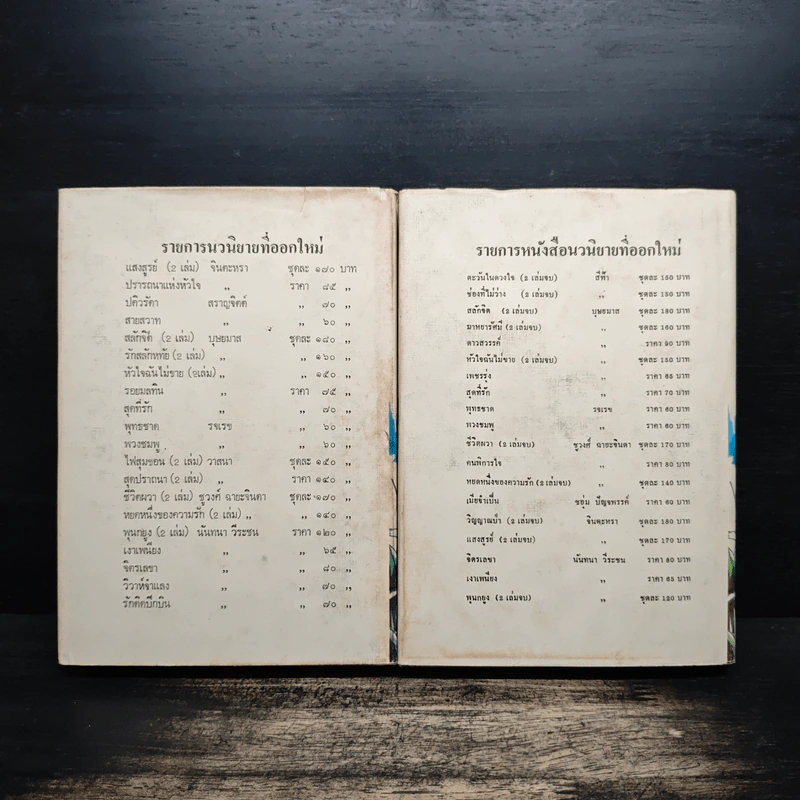 รายการนวนิยายที่ออกใหม่
แสงสูรย์ (2 เล่ม) จินตะหรา ชุดละ ๑๗๐ บาท
ปรารถนาแห่งหัวใจ ,, ราคา ๘๕ ,,
ปติวรัดา สราญจิตต์ ,, ๗๐ ,,
สายสวาท ,, ,, ๖๐ ,,
สลักจิต (2 เล่ม) บุษยมาส ชุดละ ๑๘๐ ,,
รักสลักหทัย (2 เล่ม) ,, ,, ๑๖๐ ,,
หัวใจฉันไม่ขาย (2เล่ม) ,, ,, ๑๕๐ ,,
รอยมลทิน ,, ราคา ๗๕ ,,
สุดที่รัก ,, ,, ๗๐ ,,
พุทธชาด รจเรข ,, ๖๐ ,,
พวงชมพู ,, ,, ๖๐ ,,
ไฟสุมขอน (2 เล่ม) วาสนา ชุดละ ๑๕๐ ,,
สุดปราถนา (2 เล่ม) ,, ราคา ๑๔๐ ,,
ชีวิตผวา (2 เล่ม) ชูวงศ์ ฉายะจินดา ชุดละ ๑๗๐ ,,
หยดหนึ่งของความรัก (2 เล่ม) ,, ,, ๑๔๐ ,,
พุนกยูง (2 เล่ม) นันทนา วีระชน ราคา ๑๒๐ ,,
เงาเพนียง ,, ,, ๖๕ ,,
จิตรเลขา ,, ,, ๘๐ ,,
วิวาห์จำแลง ,, ,, ๗๐ ,,
รักติดปีกบิน ,, ,, ๗๐ ,,
รายการหนังสือนวนิยายที่ออกใหม่
ตะวันในดวงใจ (2 เล่มจบ) สีฟ้า ชุดละ 150 บาท
ช่องที่ไม่ว่าง (2 เล่มจบ) ,, ชุดละ 150 บาท
สลักจิต (2 เล่มจบ) บุษยมาส ชุดละ 180 บาท
มาหยารัศมี (2 เล่มจบ) ,, ชุดละ 160 บาท
ดาวสวรรค์ ,, ราคา 90 บาท
หัวใจฉันไม่ขาย (2 เล่มจบ) ,, ชุดละ 150 บาท
เพชรรุ่ง ,, ราคา 65 บาท
สุดที่รัก ,, ราคา 70 บาท
พุทธชาด รจเรข ราคา 60 บาท
พวงชมพู ,, ราคา 60 บาท
ชีวิตผวา (2 เล่มจบ) ชูวงศ์ ฉายะจินดา ชุดละ 170 บาท
คนพิการใจ ,, ราคา 80 บาท
หยดหนึ่งของความรัก (2 เล่มจบ) ,, ชุดละ 140 บาท
เมียจำเป็น ชอุ่ม ปัญจพรรค์ ราคา 60 บาท
วิญญาณป่า (2 เล่มจบ) จินตะหรา ชุดละ 130 บาท
แสงสูรย์ (2 เล่มจบ) ,, ชุดละ 170 บาท
จิตรเลขา นันทนา วีระชน ราคา 80 บาท
เงาเพนียง ,, ราคา 65 บาท
พุนกยูง (2 เล่มจบ) ,, ชุดละ 120 บาท